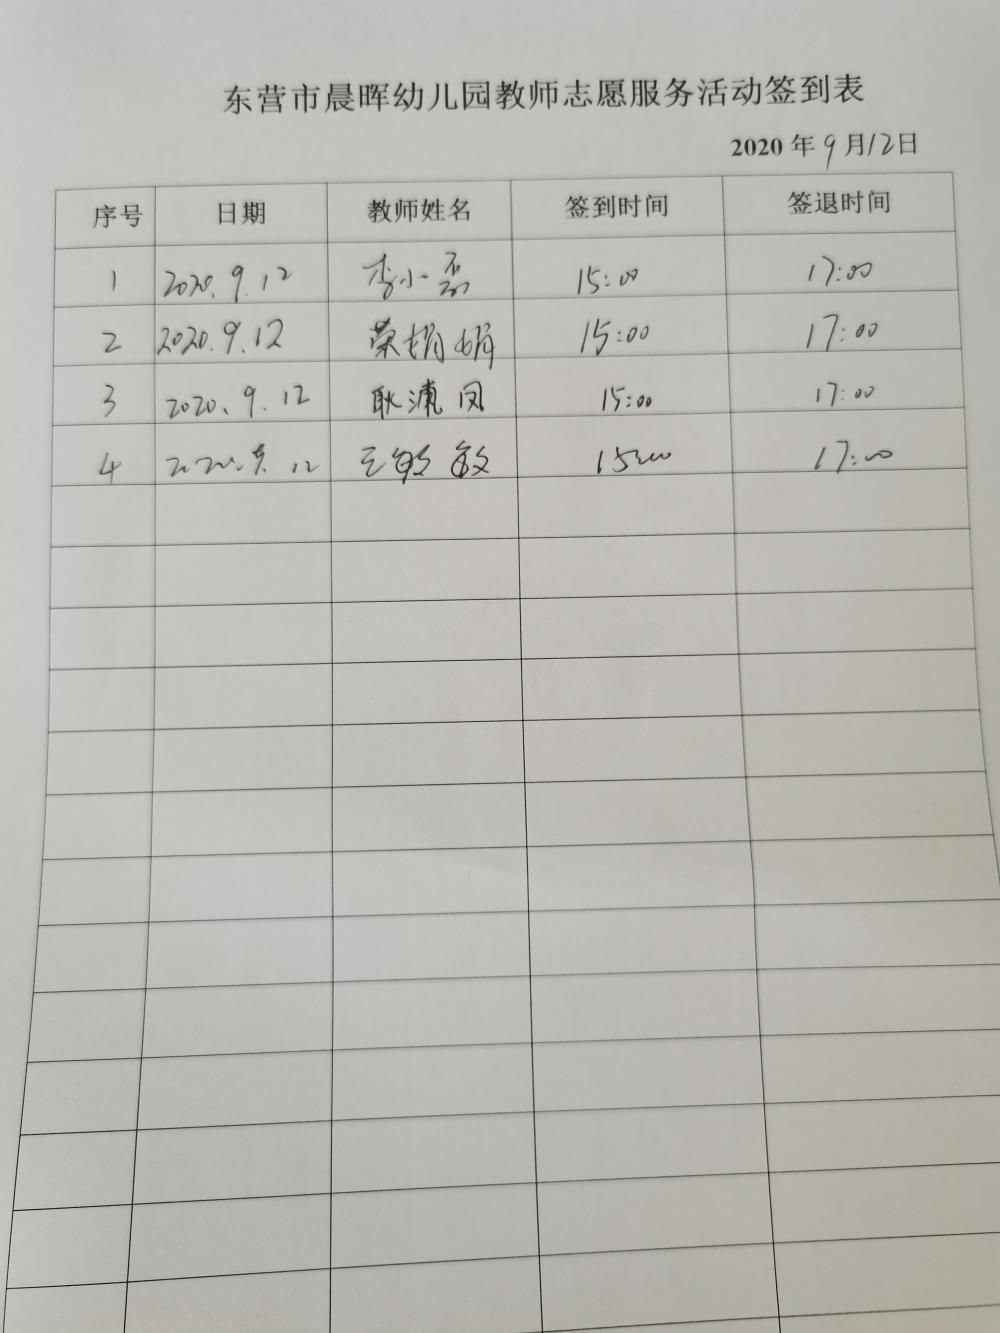 东营市晨晖幼儿园教师志愿服务活动签到表
2020 年 9 月 12 日
序号 日期 教师姓名 签到时间 签退时间
1 2020.9.12 李小磊 15:00 17:00
2 2020.9.12 荣娟娟 15:00 17:00
3 2020.9.12 耿 凤 15:00 17:00
4 2020.9.12 王敏敏 15:00 17:00